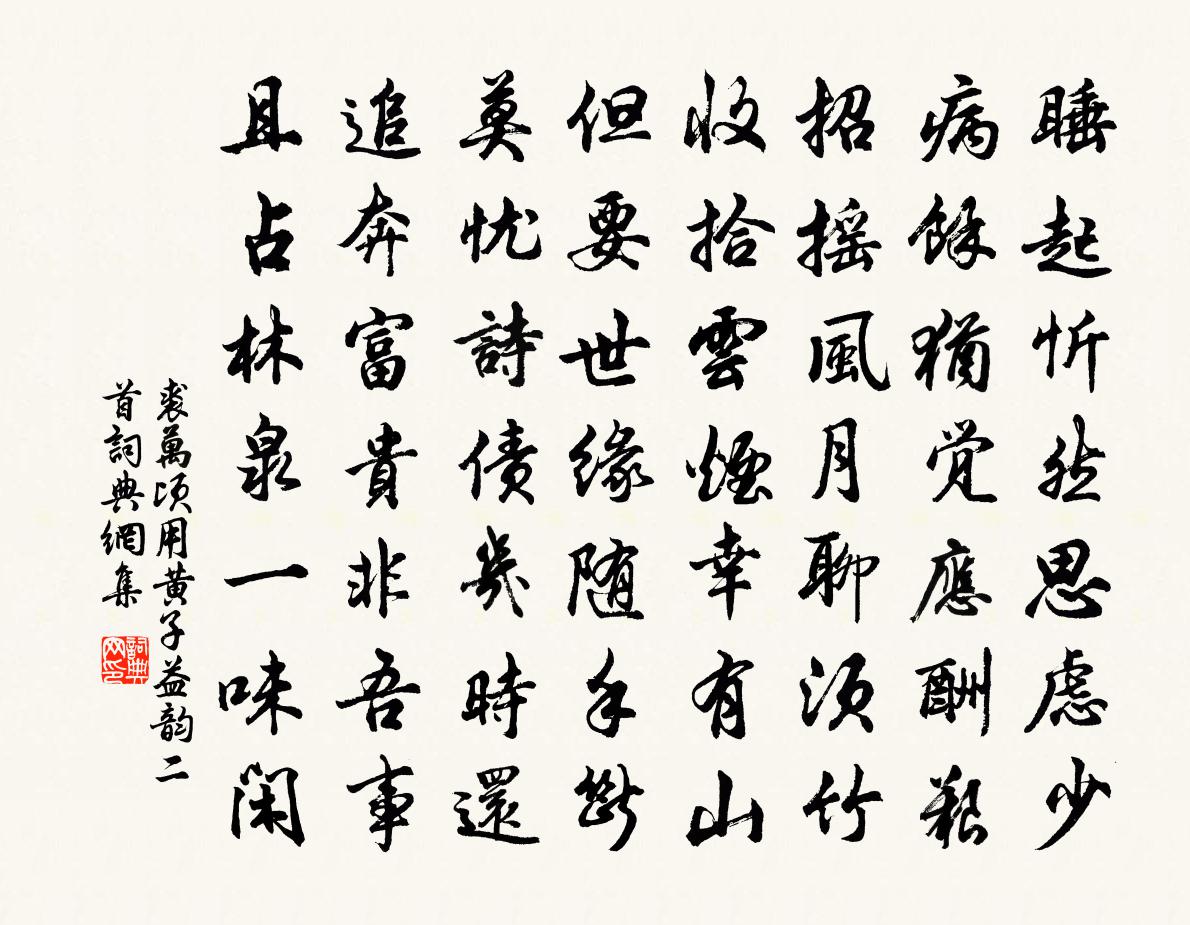 睡起忻然思慮少
病餘猶覺應酬艱
招搖風月聊須竹
收拾雲煙幸有山
但要世緣隨手斷
莫憂詩債幾時還
追奔富貴非吾事
且占林泉一味閑
裘萬頃用黃子益韵二
首詞典網集
詞典網印